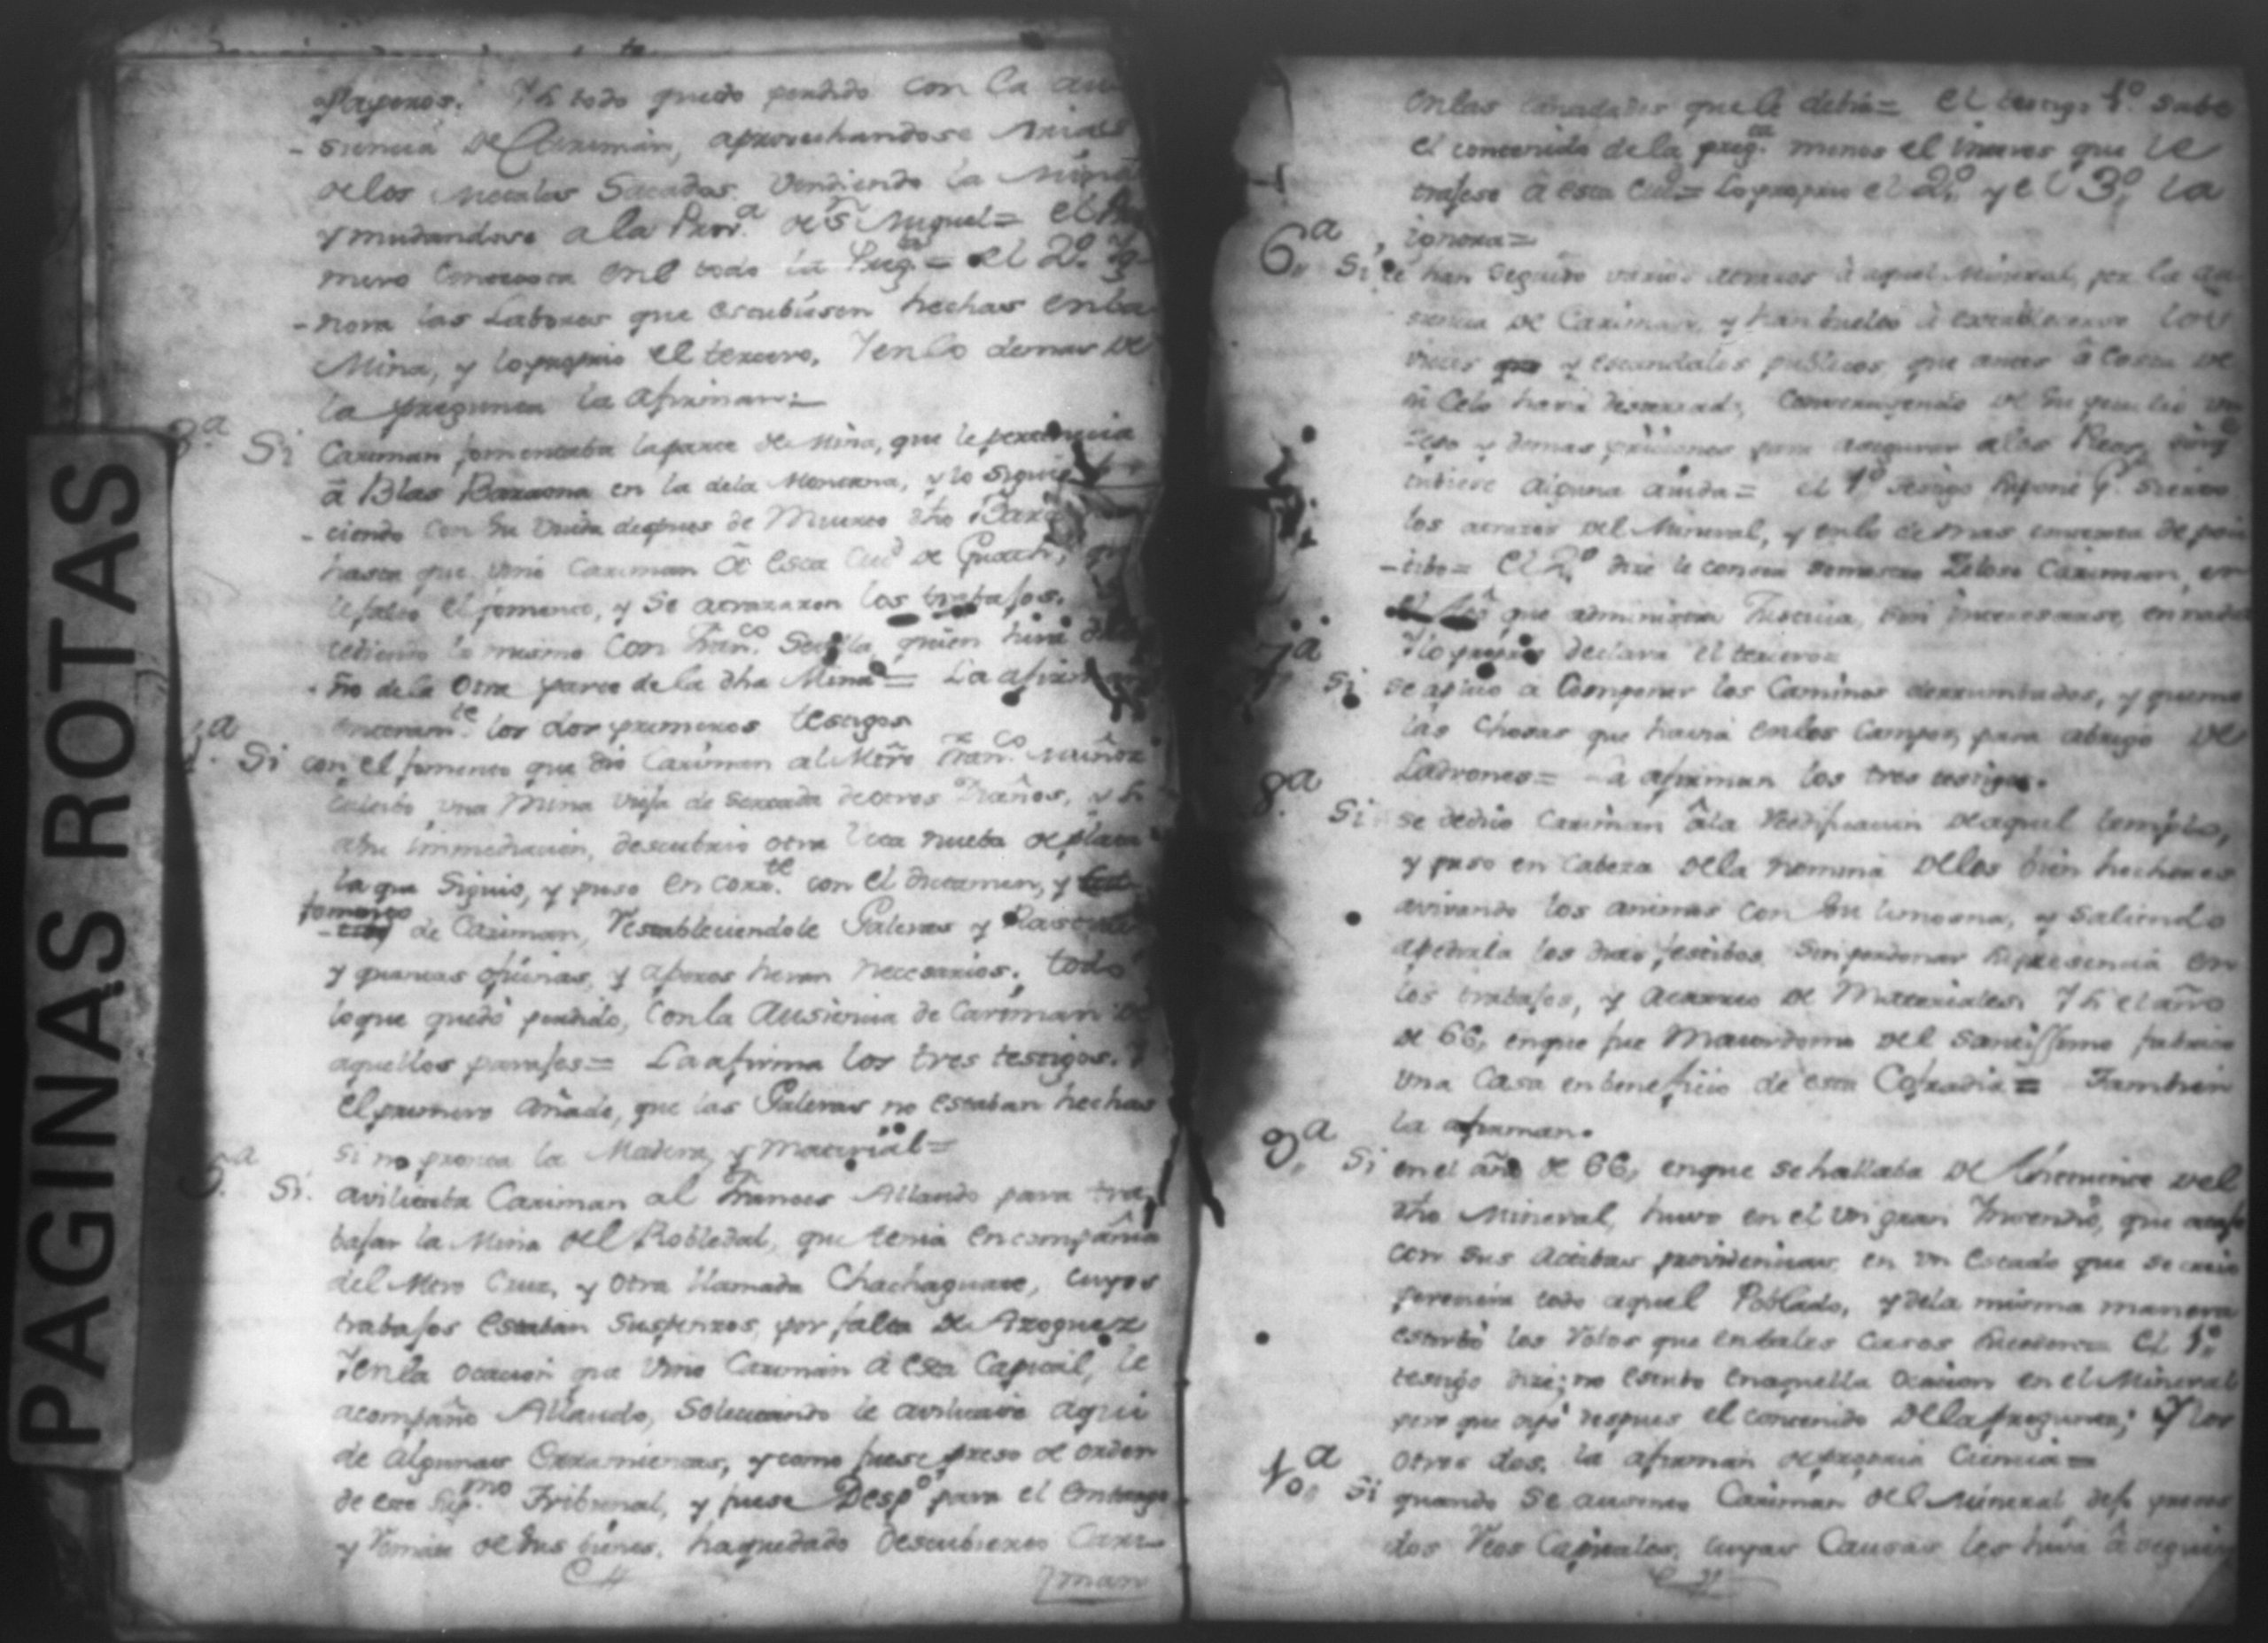 PAGINAS ROTAS
aperos. Y si todo quedo perdido con la au
- siencia de Cariman, aprovechandose
de los Metales Sacados. Vendiendo la Mina
y mudandose a la Prov.ª de S.ⁿ Miguel = el Pri
mero Contesta en todo la Preg.ta = el 2.º Yg
- nora las Labores que estubiesen hechas en la
Mina, y lo proprio el tercero, Y en lo demas de
la pregunta la afirman =
3.ª Si Cariman fomentaba la parte de Mina, que le pertenecia
â Blas Baraona en la de la Montana, y lo siguio
- ciendo con su Viuda despues de Muerto dho Bara
hasta que vino Cariman â esta Ciu.d de Guath.
le falto el fomento, y se atrazaron los trabajos.
cediendo lo mismo con Fran.co Sevilla quien hera due
- ño de la Otra parte de la dha Mina = La afirman
enteram.te los dos primeros testigos
4.ª Si con el fomento que dio Cariman al Mtro Fran.co Muñoz
una Mina vieja de
a su immediacion, descubrio otra Veta nueba de plata
la que Siguio, y puso en corr.te con el dictamen, y
fomento de Cariman, Restableciendole Galeras y Rastras
y quantas oficinas, y aperos heran necesarios. todo
lo que quedó perdido, con la Ausiencia de Cariman de
aquellos parajes = La afirma los tres testigos. Y
el primero añade, que las Galeras no estaban hechas
si no pronta la Madera, y material =
5.ª Si. avilitaba Cariman al Frances Allaudo para tra
bajar la Mina del Robledal, que tenia en compañia
del Mtro Cruz, y otra llamada Chachaguate, cuyos
trabajos estaban suspenzos, por falta de Azoguez
Y en la ocacion que vino Cariman á esta Capital, le
acompaño Allaudo, Solicitando le avilitase aqui
de algunas Erramientas, y como fuese preso de orden
de este Sup.mo Tribunal, y fuese Desp.º para el embargo
y Remate de sus bienes. ha quedado descubierto Cari-
man
en las que le debia = el testigo 1.º sabe
el contenido de la preg.ta menos el que le
trajese â esta Ciu.d = lo proprio el 2.º y el 3.º la
ignora =
6.ª Si se han seguido varios atrasos â aquel Mineral, por la au
siencia de Cariman, y han buelto â establecerse los
vicios y escandalos publicos, que antes â costa de
su Celo havia desterrado, de su peculio
Zepo y demas priciones para asegurar a los Reos, sin q.e
tubiese alguna aiuda = el 1.º Testigo Repone q.e
los atrazos del Mineral, y en lo demas contexta de posi
- tibo = el 2.º dice le consta Zeloso Cariman, en
que administra Justicia, sin interesarse, en nada
Y lo proprio declara el tercero =
7.ª Si se aplico a Componer los Caminos derrumbados, y quemo
las Chosas que havia en los Campos, para abrigo de
Ladrones = La afirman los tres testigos.
8.ª Si se dedico Cariman â la Redificacion de aquel templo,
y puso en Cabeza de la nomina de los bien hechores
avivando los animos con su limosna, y saliendo
a pedirla los dias festibos sin perdonar su presencia en
los trabajos, y acarreo de Materiales. Y si el año
de 66, en que fue Maiordomo del Santissimo fabrico
una Casa en beneficio de esta Cofradia = Tambien
la afirman.
9.ª Si en el año de 66, en que se hallaba de Theniente del
dho Mineral, huvo en el un gran Incendio, que atajo
con sus actibas providencias, en un estado que se creio
pereciera todo aquel Poblado, y de la misma manera
estorbó los Robos que en tales casos = el 1.º
testigo dice; no estubo en aquella ocacion en el Mineral
pero que oyó despues el contenido de la pregunta; y los
otros dos, la afirman de propria Ciencia =
10.ª Si quando se ausento Cariman del Mineral, dejo presos
dos Reos Capitales, cuyas Causas les hiva â seguir